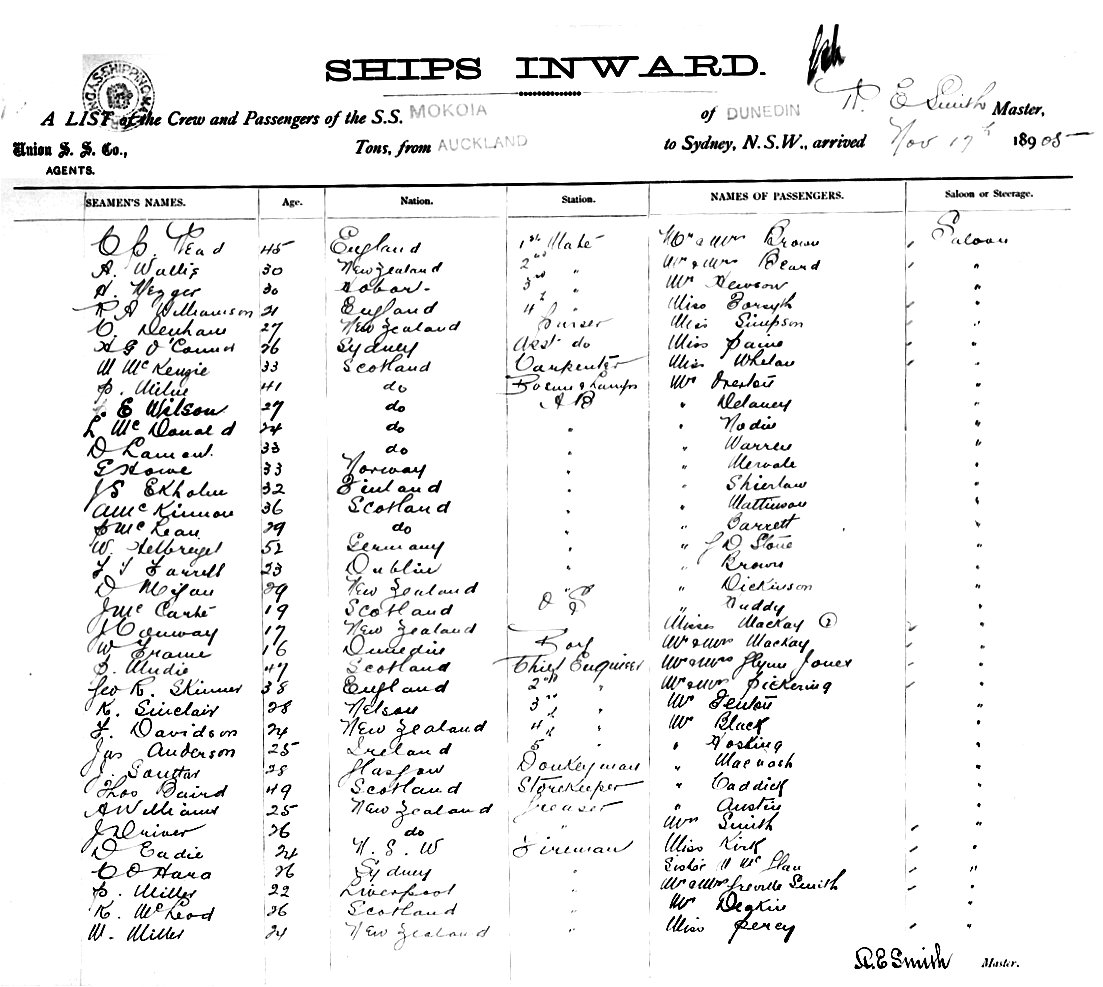 SHIPS INWARD.
A LIST of the Crew and Passengers of the S.S. MOKOIA of DUNEDIN E Smith Master,
Union S. S. Co., Tons, from AUCKLAND to Sydney, N.S.W., arrived Nov 17th 18905
AGENTS.
SEAMEN'S NAMES. Age. Nation. Station. NAMES OF PASSENGERS. Saloon or Steerage.
45 England 1st Mate Mr & Mrs Brown Saloon
A. Wallis 30 New Zealand 2nd " Mr & Mrs Beard "
H. 30 Hobart 3rd " Mr Hewson "
R A Williamson 21 England 4 " Miss Forsyth "
C. Denham 27 New Zealand Purser Miss Simpson "
H G O'Connor 26 Sydney Asst do Miss Paine "
W McKenzie 33 Scotland Carpenter Miss Whelan "
P. Milne 41 do Bosun & Lamps Mr Overton "
E Wilson 27 do A B " Delaney "
L McDonald 24 do " " "
D Lamont 33 do " " Warren "
G Howe 33 Norway " " "
J E Ekholm 32 Finland " " Shierlaw "
A McKinnon 36 Scotland " " Mattinson "
McLean 29 do " " Barrett "
W. 52 Germany " " J D Stone "
Farrell 23 Dublin " " Brown "
D 29 New Zealand " " Dickinson "
J McCarte 19 Scotland O S " "
J Conway 17 New Zealand " Misses Mackay 2 "
W Frame 16 Dunedin Boy Mr & Mrs Mackay "
Mudie 47 Scotland Chief Engineer Mr & Mrs Flynn Jones "
Geo R. Skinner 38 England 2nd " Mr & Mrs Pickering "
K. Sinclair 28 Nelson 3rd " Mr Fenton "
Davidson 24 New Zealand 4th " Mr Black "
Jas Anderson 25 Ireland 5 " " Hosking "
Souttar 28 Glasgow Donkeyman " "
Thos Baird 49 Scotland Storekeeper " Caddick "
A Williams 25 New Zealand Greaser " Austin "
J Driver 26 do " Mrs Smith "
D Eadie 24 N. S. W Fireman Miss Kirk "
C O'Hara 26 Sydney " Sister "
P. Miller 22 Liverpool " Mr & Mrs Greville Smith "
K. McLeod 26 Scotland " Mr Deakin "
W. Miller 24 New Zealand " Miss Percy "
A.E Smith Master.